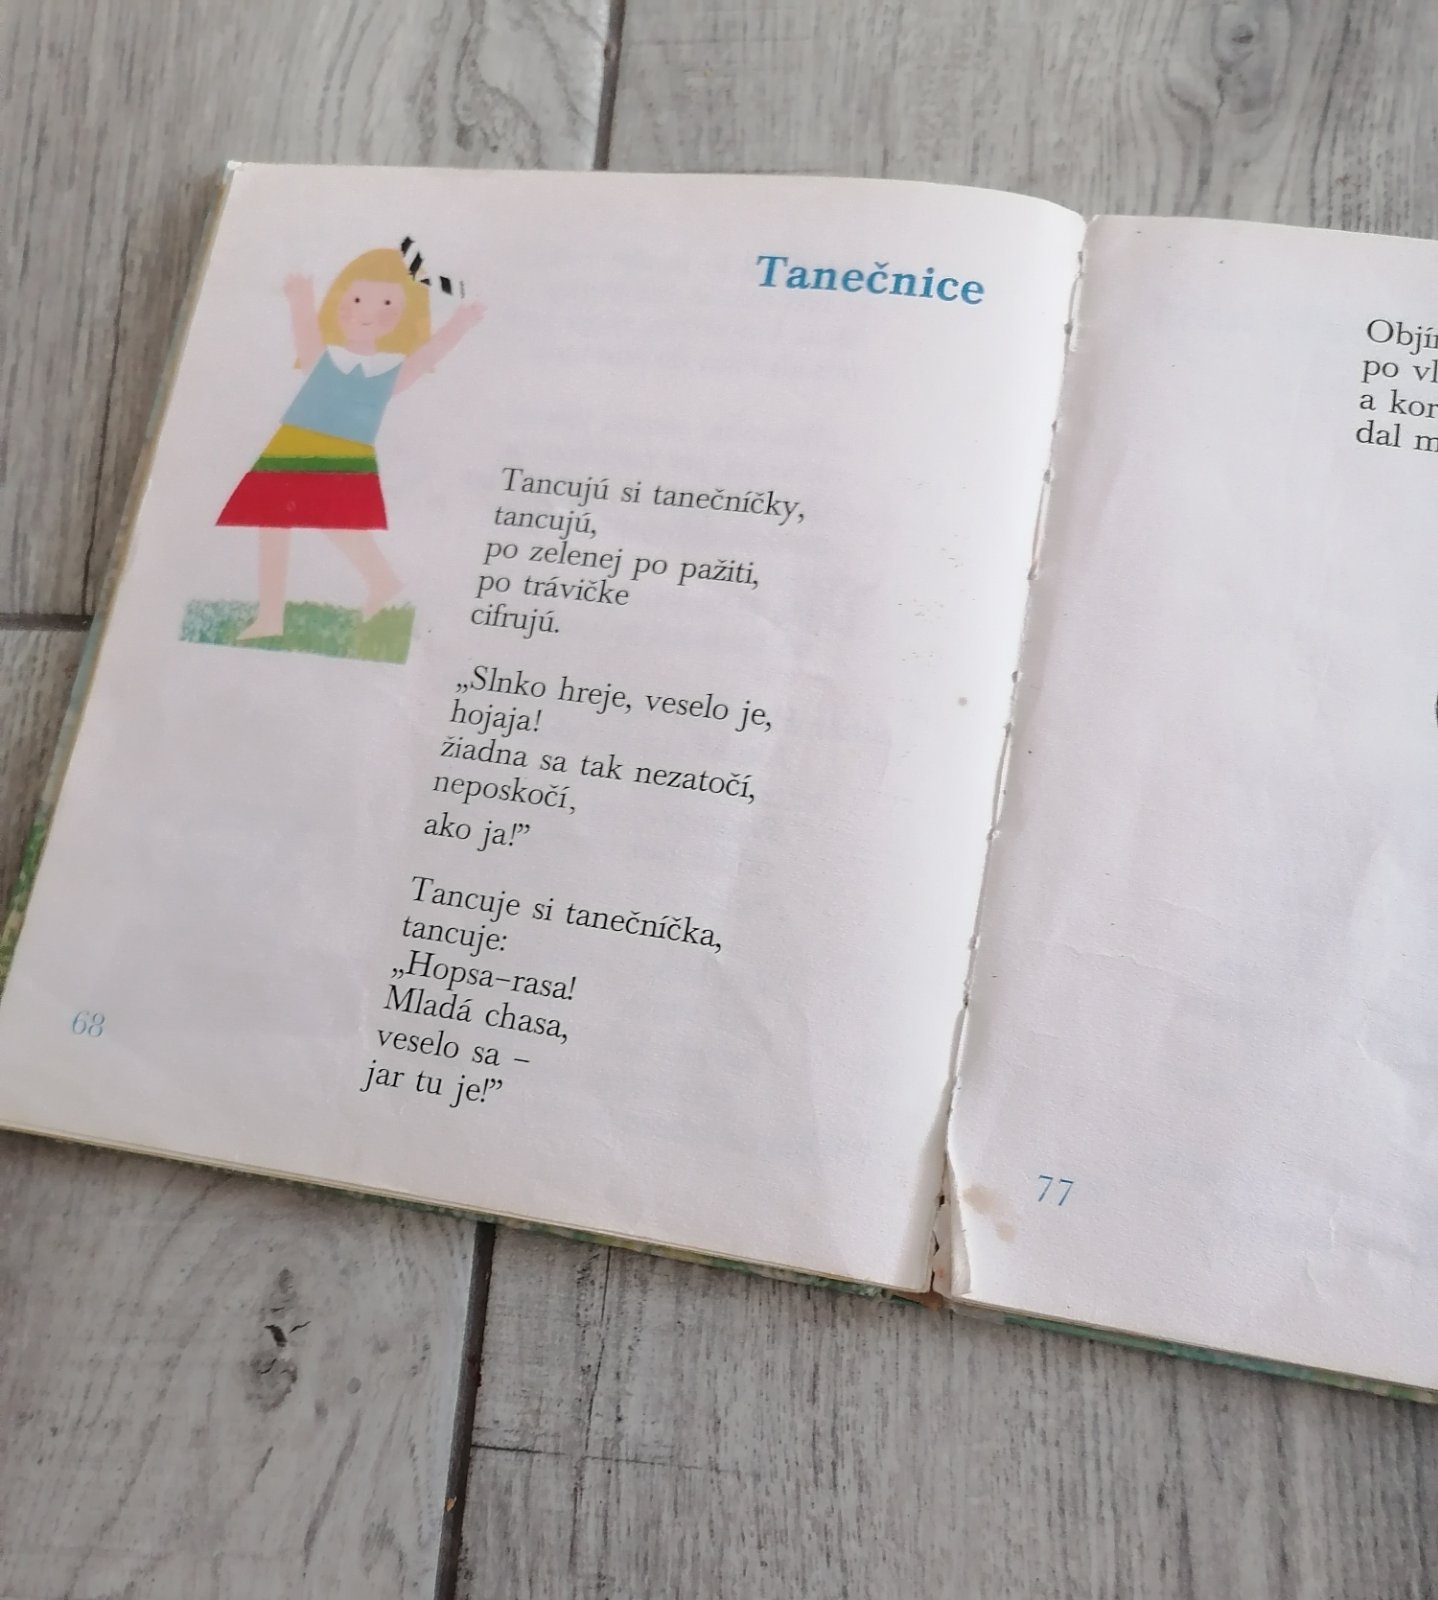 Tanečnice
Tancujú si tanečníčky,
tancujú,
po zelenej po pažiti,
po trávičke
cifrujú.
„Slnko hreje, veselo je,
hojaja!
žiadna sa tak nezatočí,
neposkočí,
ako ja!”
Tancuje si tanečníčka,
tancuje:
„Hopsa–rasa!
Mladá chasa,
veselo sa –
jar tu je!”
68
po
a
dal
77